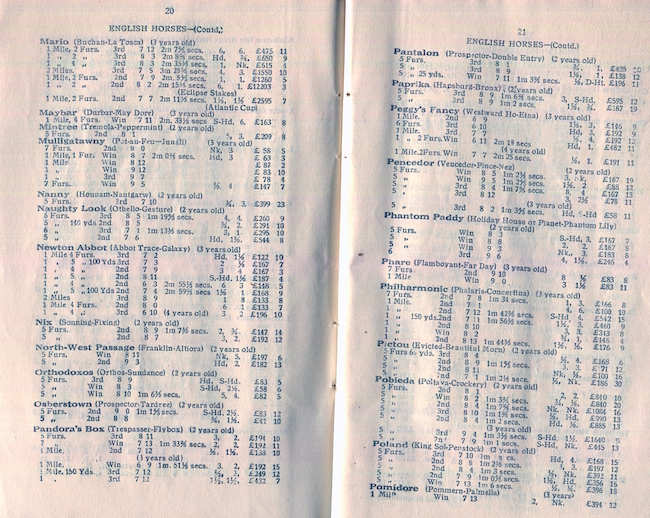 20
ENGLISH HORSES—(Contd.)
Mario (Buchan-La Tosca) (3 years old)
1 Mile, 2 Furs. 3rd 7 12 2m 7⅗ secs. 6, 6. £475 11
1 „ 2 „ 3rd 8 3 2m 8⅗ secs. Hd, ¾, £650 9
1 „ 4 „ 3rd 8 3 2m 35⅗ secs. 4, 1, Nk. £615 4
2 Miles. 3rd 7 5 3m 28⅗ secs. 4, 3. £1550 10
1 Mile, 2 Furs. 2nd 7 9 2m. 5⅗ secs. 1, 1, £1260 5
1 „ 2 „ 2nd 8 2 2m 15⅗ secs. 6, 1. £12203 3
(Eclipse Stakes)
1 Mile, 2 Furs Win 7 7 2m 11⅗ secs. 1½, 1½ £2595 7
(Atlantic Cup)
Maybar (Durbar-May Dore) (3 years old)
1 Mile, 6 Furs. Win 7 11 2m. 33⅗ secs S-Hd, 6. £163 8
Mintree (Tremola-Peppermint) (2 years old)
5 Furs. 2nd 8 1 3. £209 8
Mulligatawny (Pot-au-Feu-Jungli) (3 years old)
7 Furs. 2nd 8 0 Nk, 3 £58 5
1 Mile, 1 Fur. Win 8 7 2m 0⅗ secs. Hd, 3 £63 3
1 Mile Win 8 12 £87 2
1 „ Win 9 12 £83 10
1 „ Win 9 7 £78 4
7 Furs. Win 9 5 4 £147 7
Nanny (Hounam-Nantgarw) (2 years old)
5 Furs. 3rd 7 10 ¾, 3. £399 23
Naughty Look (Othello-Gesture) (2 years old)
6 Furs. 3rd 8 5 1m 19⅗ secs. 4, 4. £260 9
5 „ 140 yds 2nd 8 5 ¾, 2. £291 10
6 „ 3rd 7 1 1m 13⅗ secs. 3, 1. £295 10
5 „ 2nd 7 6 Hd, 1½. £544 8
Newton Abbot (Abbot Trace-Galaxy) (3 years old)
1 Mile 4 Furs. 3rd 7 2 Hd, 1½ £122 10
1 „ 5 „ 100 Yds 3rd 7 3 2 £167 7
1 „ 4 „ 2nd 7 9 3 4 £167 3
1 „ 5 „ 2nd 8 11 S.-Hd, 1½ £187 4
1 „ 4 „ 2nd 6 3 2m 55⅗ secs 6 3 £148 8
1 „ 5 „ 100 Yds 2nd 7 4 2m 59⅗ secs 1½ 1 £168 9
2 Miles 3rd 8 9 6 1 £133 7
1 Mile 4 Furs. 2nd 8 0 1 8 £133 7
1 „ 4 „ 3rd 6 10 (4 years old) 3 2 £196 10
Nix (Sonning-Fixing) (2 years old)
5 Furs. 2nd 8 9 1m 7⅗ secs. 2, ¾. £147 14
5 „ 2nd 8 7 3, 2. £192 12
North-West Passage (Franklin-Altiora) (2 years old)
5 Furs. Win 8 11 Nk, 5, £197 6
5 „ 2nd 9 3 Hd, 2. £182 13
Orthodoxos (Orthos-Sundance) (2 years old)
5 Furs. 3rd 8 9 Hd, S-Hd. £83 5
5 „ Win 8 3 S-Hd, 2½. £58 6
5 „ Win 8 10 1m 6⅗ secs. 5, 4. £82 5
Osberstown (Prospector-Tardree) (2 years old)
5 Furs. 2nd 9 0 1m 1⅗ secs. S-Hd, 2½. £83 12
5 „ 2nd 8 8 ¾, 1½. £41 10
Pandora's Box (Trespasser-Flybox) (2 years old)
5 Furs. 3rd 8 11 3, 2, £194 10
7 „ Win 7 13 1m 33⅗ secs. 2, 2, £192 11
1 Mile. 2nd 7 12 ½, 1½. £138 10
(3 years old)
1 Mile. Win 6 9 1m. 51⅗ secs. 3, 2, £192 15
1 Mile. 150 Yds. 3rd 7 12 £249 12
1 „ 3rd 7 4 1½, 1½, £432 7
21
ENGLISH HORSES—(Contd.)
Pantalon (Prospector-Double Entry) (2 years old)
5 Furs. 3rd 8 1 £435 10
5 „ 3rd 8 9 1½, 1, £138 12
5 „ 25 yds. Win 9 11 1m 3⅗ secs. ½, D-Ht. £196 11
Paprika (Hapsburg-Bronzy) (2 years old)
5 Furs. 3rd 8 9 1m 6⅗ secs. 3, S-Hd. £595 12
5 „ 3rd 8 9 1m 2 secs. £187 19
Peggy's Fancy (Westward Ho-Etna) (3 years old)
1 Mile. 2nd 6 9 1½, 3, £146 9
1 „ 3rd 6 10 Hd, 3. £192 9
1 „ 3rd 6 7 ½, 4, £192 12
1 „ 2 Furs. Win 6 11 2m 18 secs Hd, 1. £482 11
(4 years old)
1 Mile 2 Furs. Win 7 7 2m 25 secs. ½, 1. £191 11
Pencedor (Vencedor-Pince-Nez) (2 years old)
5 Furs. Win 8 5 1m 2⅗ secs. 3, Nk, £167 19
5 „ Win 9 5 1m 2⅗ secs. 1½, 2. £88 12
5 „ 3rd 8 4 1m 8⅗ secs. 8, 4. £167 13
5 „ 3rd 8 12 3, 2½. £78 11
(3 years old)
5 „ 3rd 8 2 1m 3⅗ secs. Hd, S-Hd £58 11
Phantom Paddy (Holiday House or Planet-Phantom Lily)
(2 years old)
5 Furs. Win 8 3 S.-Hd, 3. £167 7
5 „ Win 8 8 2, 2. £167 8
5 „ Win 9 3 Nk., 3. £183 8
6 „ 3rd 9 6 4, 1½. £245 4
Phare (Flamboyant-Far Day) (3 years old)
7 Furs. Win 9 10 8 £83 8
1 Mile. Win 9 0 3 1½ £83 11
Philharmonic (Phalaris-Concerfina) (3 years old)
7 Furs. 2nd 7 8 1m 3⅗ secs. 1, 3. £166 8
1 Mile. 2nd 7 1 4, 6. £100 10
1 „ 2nd 7 12 1m 44⅗ secs. S-Hd, 4. £542 15
1 „ 150 yds. 2nd 7 11 1m 56⅗ secs. 1½, 3. £460 9
1 „ 2nd 8 10 3, 8. £343 8
1 „ Win 8 2 1½, 3. £148 4
1 „ 2nd 8 13 1m 44⅗ secs. 1½, ½. £175 9
Pictou (Evicted-Beautiful Morn) (2 years old)
5 Furs 60 yds. 3rd 8 4 ½, 4. £168 6
5 „ 2nd 8 9 1m 1⅗ secs. 3, 3. £71 12
5 „ 2nd 8 11 Nk, ½. £100 16
5 „ 2nd 7 1 2m 2⅗ secs. 1, Nk. £186 30
Pobieda (Poltava-Crockery) (2 years old)
5 Furs. 2nd 8 3 2, 2. £840 10
5 „ Win 8 2 1m 3⅗ secs. ½, 2. £840 10
5 „ 2nd 8 4 1m 7⅗ secs. Nk. Nk. £1084 16
5 „ 2nd 8 9 1m 2⅗ secs. ½, Hd, £990 13
5 „ 2nd 8 3 Hd, ½. £885 13
(3 years old)
5 „ 3rd 9 4 1m 3⅗ secs. S-Hd, 1½. £1640 9
5 „ 2nd 7 9 1m 1 secs. S-Hd, Nk. £445 13
Poland (King Sol-Perstock) (2 years old)
5 Furs. 3rd 7 10 1m 8 secs. Hd, 4. £168 15
5 „ 2nd 8 8 1m 2⅗ secs. £197 12
5 „ 2nd 8 4 1m 5⅗ secs. 1, Nk. £192 10
5 „ 2nd 7 9 1m 0⅗ secs. 1½, Hd, £356 16
5 „ Win 7 13 1m 6 secs. ½, ½. £396 18
Pomidore (Pommern-Palmella) (3 years)
1 Mile Win 7 13 2, Nk. £394 12